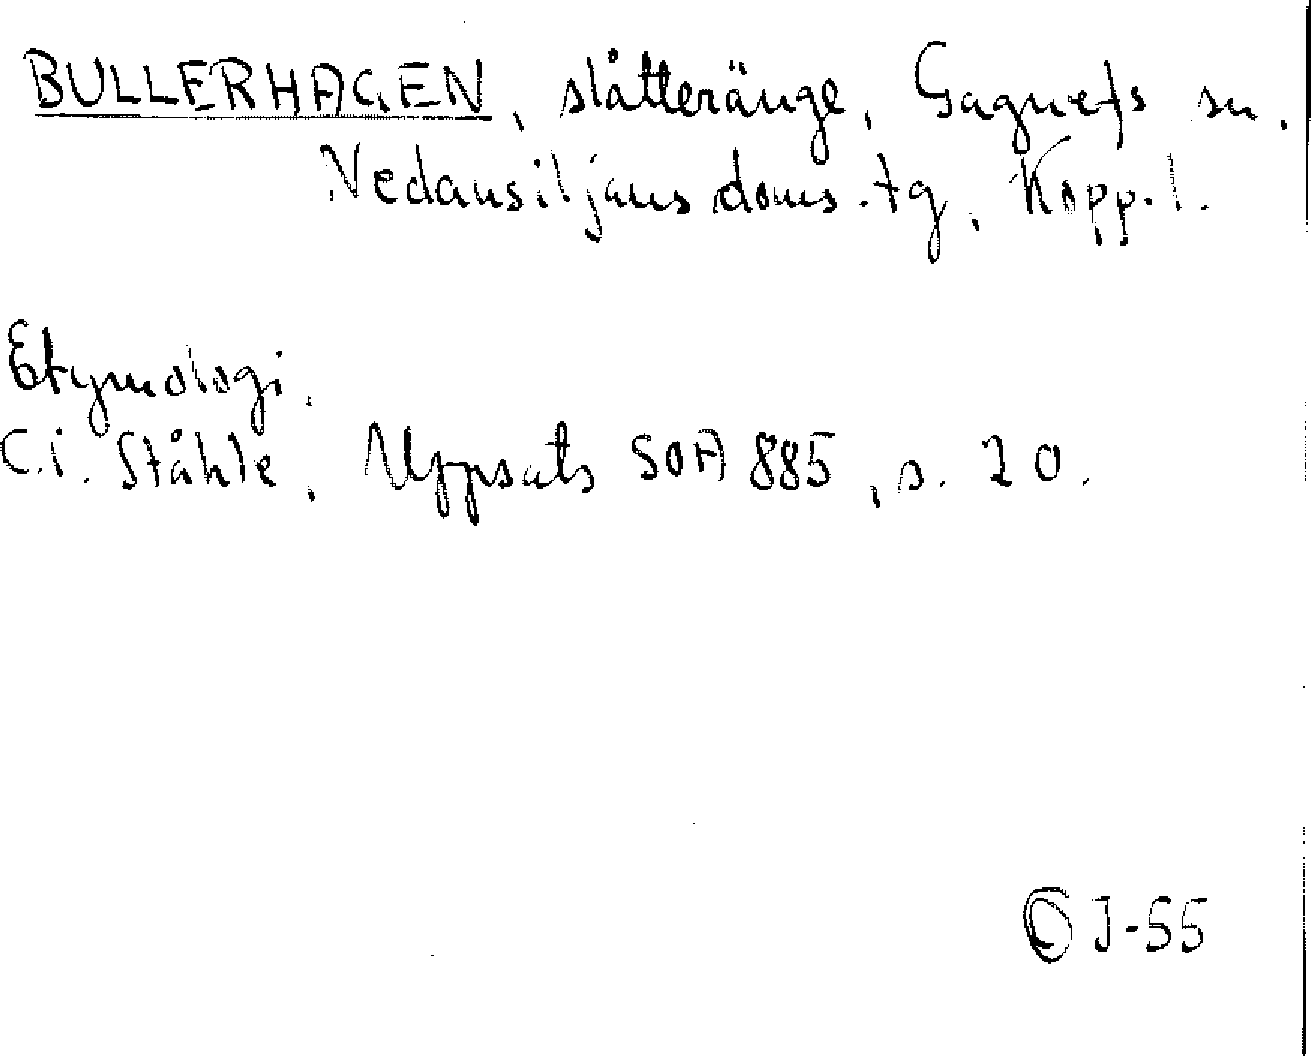 BULLERHAGEN, slåtteränge, Gagnefs sn.
Nedansiljans doms.tg, Kopp.l.
Etymologi.
C.i. Ståhle, Uppsats SOA 885, s. 20.
J-55